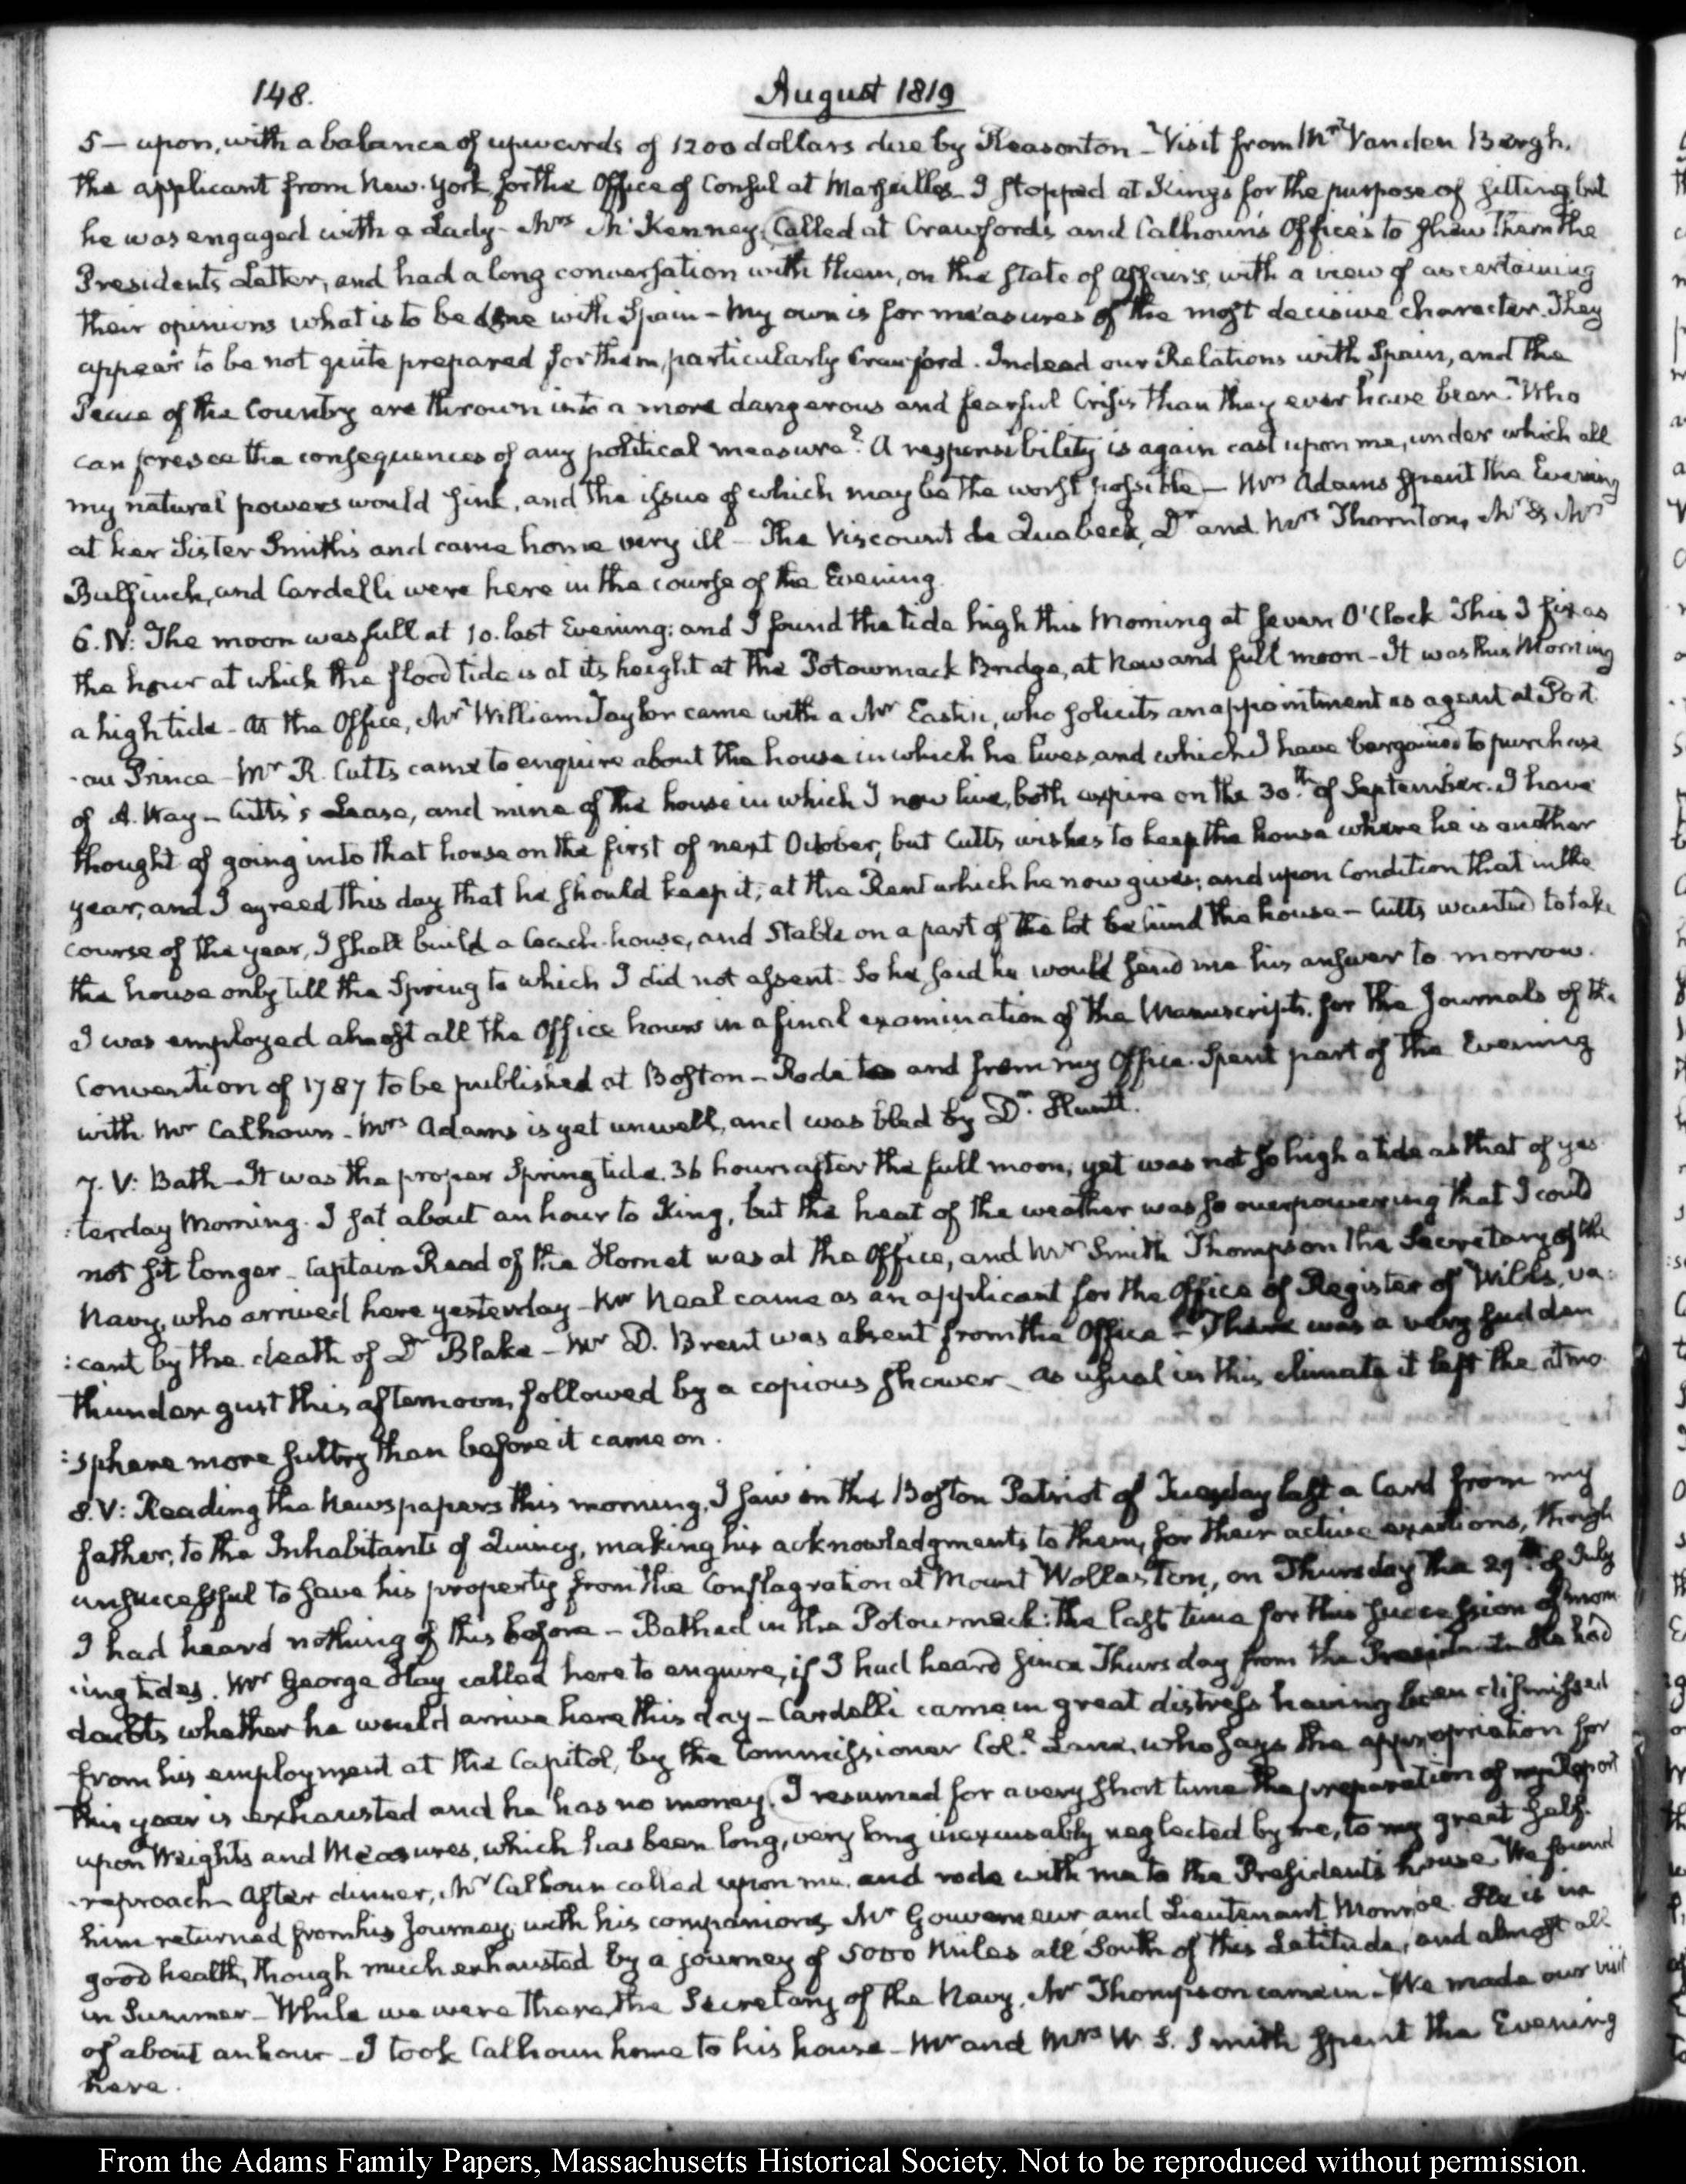 148.
August 1819
5 — upon, with a balance of upwards of 1200 dollars due by Pleasonton – Visit from Mr. Vanden Bergh.
the applicant from New-York for the Office of Consul at Marseilles – I stopped at Kings for the purpose of sitting, but
he was engaged with a Lady – Mrs McKenney. Called at Crawford's and Calhoun's Offices to shew them the
Presidents Letter, and had a long conversation with them, on the state of affairs, with a view of ascertaining
their opinions what is to be done with Spain – My own is for measures of the most decisive character. They
appear to be not quite prepared for them, particularly Crawford. Indeed our Relations with Spain, and the
Peace of the Country are thrown into a more dangerous and fearful Crisis than they ever have been. Who
can foresee the consequences of any political measure? A responsibility is again cast upon me, under which all
my natural powers would sink, and the issue of which may be the worst possible – Mrs Adams spent the Evening
at her Sister Smith's and came home very ill – The Viscount de Quabeck, Dr and Mrs Thornton, Mr & Mrs
Bulfinch, and Cardelli were here in the course of the Evening.
6. IV: The moon was full at 10. last Evening: and I found the tide high this Morning at seven O'Clock This I fix as
the hour at which the flood tide is at its height at the Potowmack Bridge, at New and full moon – It was this Morning
a high tide – At the Office, Mr William Taylor came with a Mr Eastin, who solicits an appointment as agent at Port
-au Prince – Mr R. Cutts came to enquire about the house in which he lives, and which I have bargained to purchase
of A. Way – Cutts's Lease, and mine of the house in which I now live, both expire on the 30th. of September. I have
thought of going into that house on the first of next October, but Cutts wishes to keep the house where he is another
year; and I agreed this day that he should keep it; at the Rent which he now gives; and upon Condition that in the
course of the year, I shall build a Coach-house, and Stable on a part of the lot behind the house – Cutts wanted to take
the house only till the Spring to which I did not assent. So he said he would send me his answer to morrow.
I was employed almost all the Office hours in a final examination of the Manuscripts for the Journals of the
Convention of 1787 to be published at Boston – Rode to and from my Office. Spent part of the Evening
with Mr Calhoun – Mrs Adams is yet unwell, and was bled by Dr. Huntt.
7. V: Bath – It was the proper Spring tide. 36 hours after the full moon, yet was not so high a tide as that of yes
:terday Morning. I sat about an hour to King, but the heat of the weather was so overpowering that I could
not sit longer – Captain Read of the Hornet was at the Office, and Mr Smith Thompson the Secretary of the
Navy, who arrived here yesterday – Mr Neal came as an applicant for the Office of Register of Wills, va:
:cant by the death of Dr Blake – Mr D. Brent was absent from the Office – There was a very sudden
thunder gust this afternoon, followed by a copious shower – as usual in this climate it left the atmo
:sphere more sultry than before it came on.
8. V: Reading the Newspapers this morning, I saw in the Boston Patriot of Tuesday last a Card from my
father, to the Inhabitants of Quincy, making his acknowledgments to them, for their active exertions, though
unsuccessful to save his property from the Conflagration at Mount Wollaston, on Thursday the 29th. of July
I had heard nothing of this before – Bathed in the Potowmack: the last time for this succession of morn
:ing tides. Mr George Hay called here to enquire, if I had heard since Thursday from the President. He had
doubts whether he would arrive here this day – Cardelli came in great distress having been dismissed
from his employment at the Capitol, by the Commissioner Coll. Lane, who says the appropriation for
this year is exhausted and he has no money. I resumed for a very short time the preparation of my Report
upon Weights and Measures, which has been long, very long inexcusably neglected by me, to my great self-
-reproach – After dinner, Mr Calhoun called upon me, and rode with me to the Presidents house. We found
him returned from his Journey, with his companions Mr Gouverneur and Lieutenant Monroe. He is in
good health, though much exhausted by a journey of 5000 Miles all South of this Latitude, and almost all
in Summer – While we were there, the Secretary of the Navy, Mr Thompson came in – We made our visit
of about an hour – I took Calhoun home to his house – Mr and Mrs W. S. Smith spent the Evening
here.
From the Adams Family Papers, Massachusetts Historical Society. Not to be reproduced without permission.